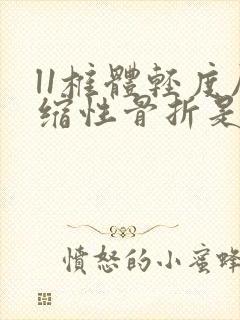 11椎體輕度
缩性骨折是
憤怒的小蜜蜂